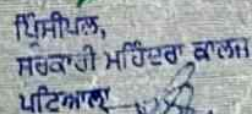 ਪ੍ਰਿੰਸੀਪਲ,
ਸਰਕਾਰੀ ਮਹਿੰਦਰਾ ਕਾਲਜ
ਪਟਿਆਲਾ